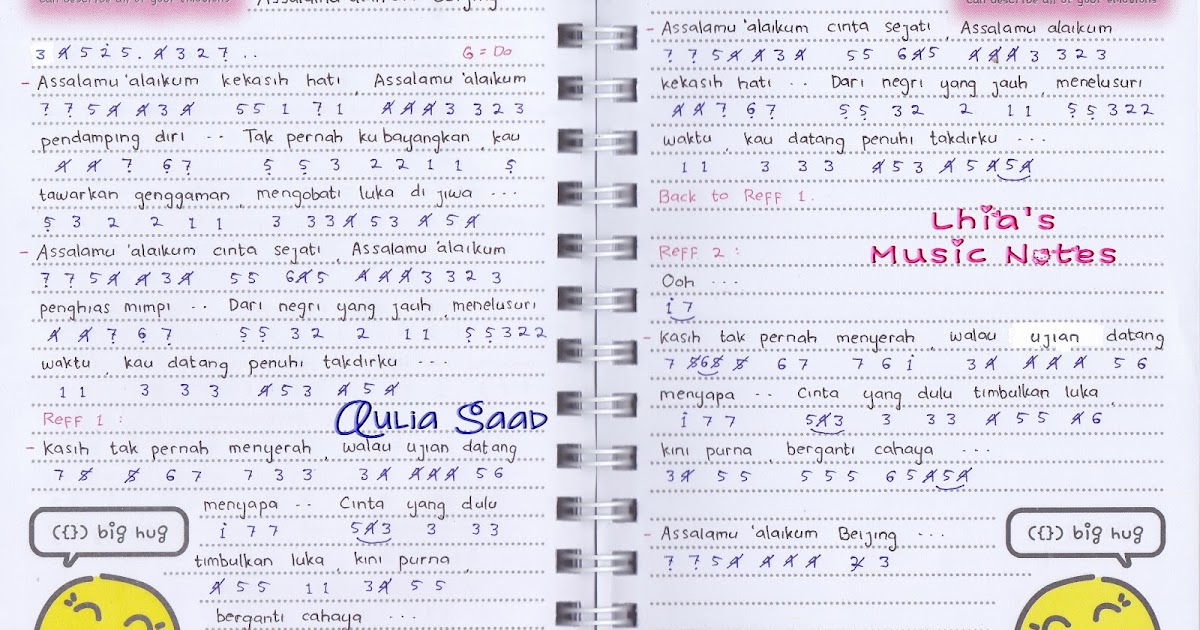 can describe all of your emotions
Assalamu 'alaikum Beijing
3 4̸ 5 1̇ 5 . 4̸ 3 2 7̣ . .
G = Do
- Assalamu 'alaikum kekasih hati , Assalamu 'alaikum
7̣ 7̣ 5 4̸ 4̸ 3 4̸ 5 5 1 7̣ 1 4̸ 4̸ 4̸ 3 3 2 3
pendamping diri .. Tak pernah ku bayangkan , kau
4̸ 4̸ 7̣ 6̣ 7̣ 5̣ 5̣ 3 2 2 1 1 5̣
tawarkan genggaman , mengobati luka di jiwa ...
5̣ 3 2 2 1 1 3 3 3 4̸ 5 3 4̸ 5 4̸
- Assalamu 'alaikum cinta sejati , Assalamu 'alaikum
7̣ 7̣ 5 4̸ 4̸ 3 4̸ 5 5 6 4̸ 5 4̸ 4̸ 4̸ 3 3 2 3
penghias mimpi .. Dari negri yang jauh , menelusuri
4̸ 4̸ 7̣ 6̣ 7̣ 5̣ 5̣ 3 2 2 1 1 5̣ 5̣ 3 2 2
waktu , kau datang penuhi takdirku ....
1 1 3 3 3 4̸ 5 3 4̸ 5 4̸
Reff 1 :
Aulia Saad
- Kasih tak pernah menyerah , walau ujian datang
7 5̸ 5̸ 6 7 7 3 3 3 4̸ 4̸ 4̸ 4̸ 5 6
menyapa .. Cinta yang dulu
1̇ 7 7 5 4̸ 3 3 3 3
timbulkan luka , kini purna ,
4̸ 5 5 1 1 3 4̸ 5 5
berganti cahaya ...
({}) big hug
can describe all of your emotions
- Assalamu 'alaikum cinta sejati , Assalamu alaikum
7̣ 7̣ 5 4̸ 4̸ 3 4̸ 5 5 6 4̸ 5 4̸ 4̸ 4̸ 3 3 2 3
kekasih hati .. Dari negri yang jauh , menelusuri
4̸ 4̸ 7̣ 6̣ 7̣ 5̣ 5̣ 3 2 2 1 1 5̣ 5̣ 3 2 2
waktu , kau datang penuhi takdirku ...
1 1 3 3 3 4̸ 5 3 4̸ 5 4̸ 5 4̸
Back to Reff 1.
Lhia's
Music Notes
Reff 2 :
Ooh ...
1̇ 7
- Kasih tak pernah menyerah , walau ujian datang
7 5̸ 6 5̸ 5̸ 6 7 7 6 1̇ 3 4̸ 4̸ 4̸ 4̸ 5 6
menyapa .. Cinta yang dulu timbulkan luka ,
1̇ 7 7 5 4̸ 3 3 3 3 4̸ 5 5 4̸ 6
kini purna , berganti cahaya ...
3 4̸ 5 5 5 5 5 6 5 4̸ 5 4̸
- Assalamu 'alaikum Beijing ...
7̣ 7̣ 5 4̸ 4̸ 4̸ 4̸ 2̸ 3
({}) big hug